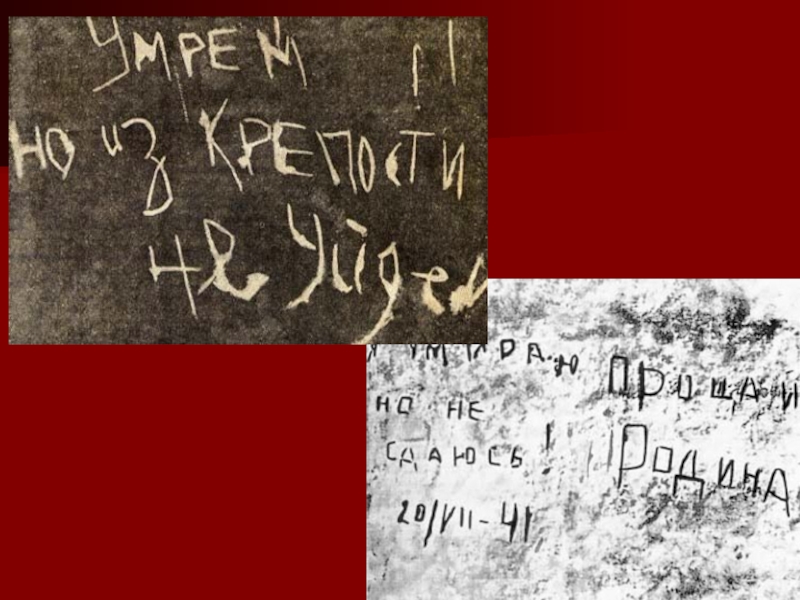 Умрем !!
но из КРЕПОСТИ
не Уйдем
Я УМИРАЮ
НО НЕ
СДАЮСЬ!
20/VII-41
ПРОЩАЙ
РОДИНА